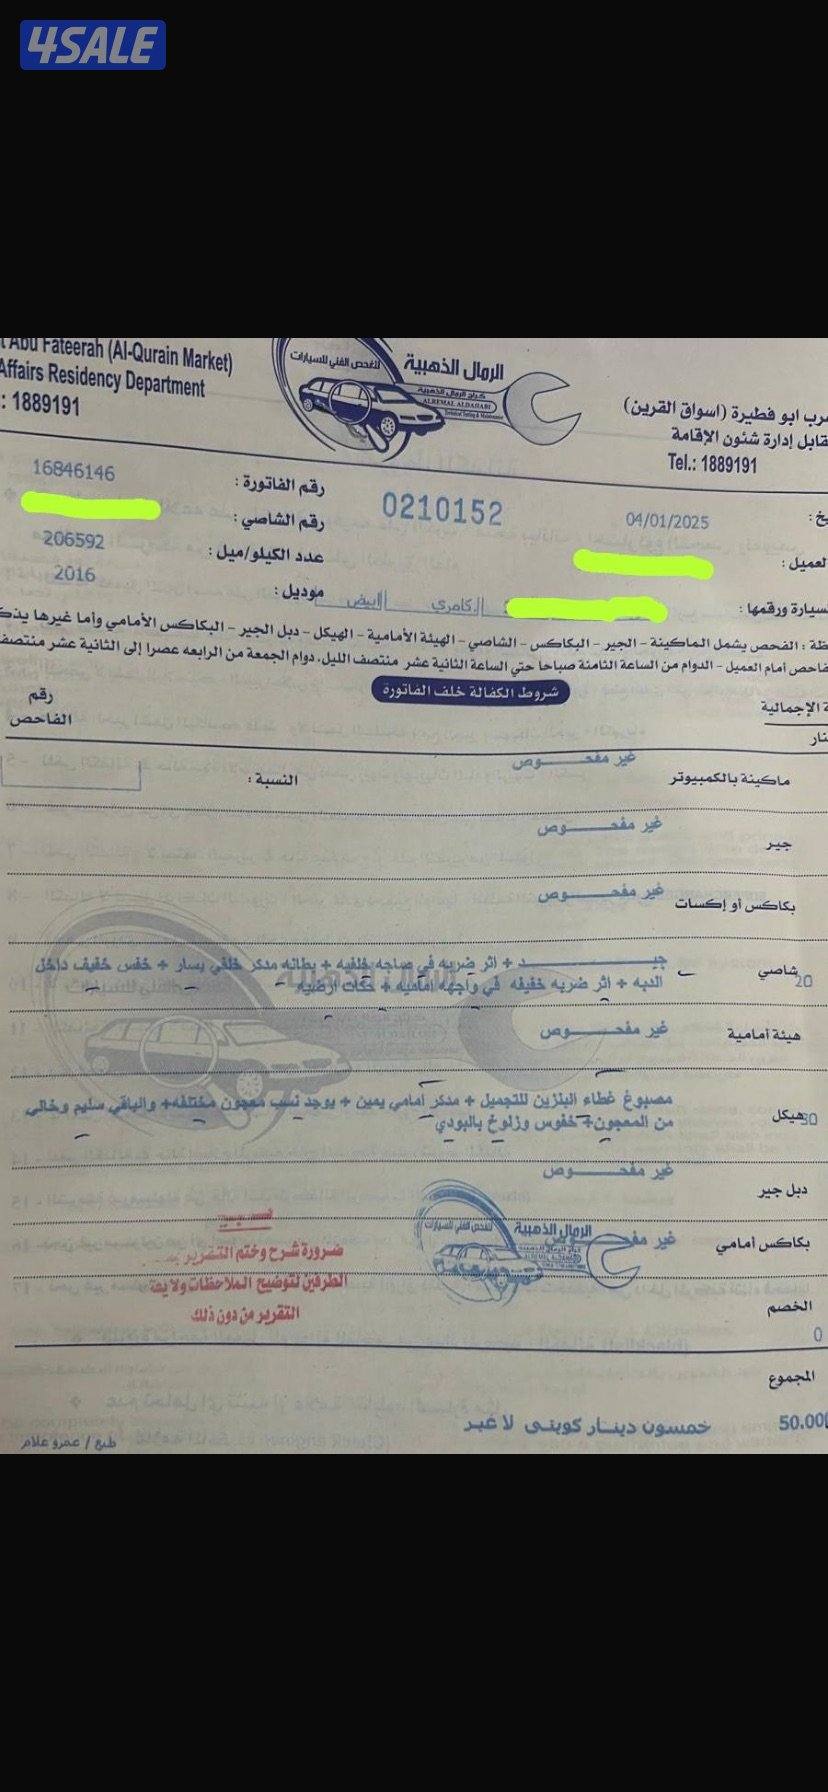 4SALE
t Abu Fateerah (Al-Qurain Market)
Affairs Residency Department
: 1889191
للفحص الفني للسيارات
الرمال الذهبية
كراج الرمال الذهبية
ALREMAL ALDAHABI
Technical Testing & Maintenance
غرب ابو فطيرة (اسواق القرين)
مقابل إدارة شئون الإقامة
Tel.: 1889191
رقم الفاتورة : 16846146
0210152
04/01/2025
رقم الشاصي :
العميل :
عدد الكيلو/ميل : 206592
موديل : 2016
السيارة ورقمها : كامري أبيض
ظة : الفحص يشمل الماكينة - الجير - البكاكس - الشاصي - الهيئة الأمامية - الهيكل - دبل الجير - البكاكس الأمامي وأما غيرها يذك
فاحص أمام العميل - الدوام من الساعة الثامنة صباحا حتي الساعة الثانية عشر منتصف الليل، دوام الجمعة من الرابعه عصرا إلى الثانية عشر منتصف
شروط الكفالة خلف الفاتورة
ة الإجمالية
رقم
الفاحص
ماكينة بالكمبيوتر غير مفحوص النسبة :
جير غير مفحوص
بكاكس أو إكسات غير مفحوص
20 شاصي جيد + اثر ضربه في صاجه خلفيه + بطانه مدكر خلفي يسار + خفس خفيف داخل
الدبه + اثر ضربه خفيفه في واجهه اماميه + حكات ارضيه
هيئة أمامية غير مفحوص
30 هيكل مصبوغ غطاء البنزين للتجميل + مدكر امامي يمين + يوجد نسب معجون مختلفه+ والباقي سليم وخالي
من المعجون+ خفوس وزلوخ بالبودي
دبل جير غير مفحوص
بكاكس أمامي غير مفحوص
للفحص الفني للسيارات
الرمال الذهبية
ضرورة شرح وختم التقرير
الطرفين لتوضيح الملاحظات ولا يعتد
التقرير من دون ذلك
الخصم
0
المجموع
50.000 خمسون دينار كويتى لا غير
طبع / عمرو علام